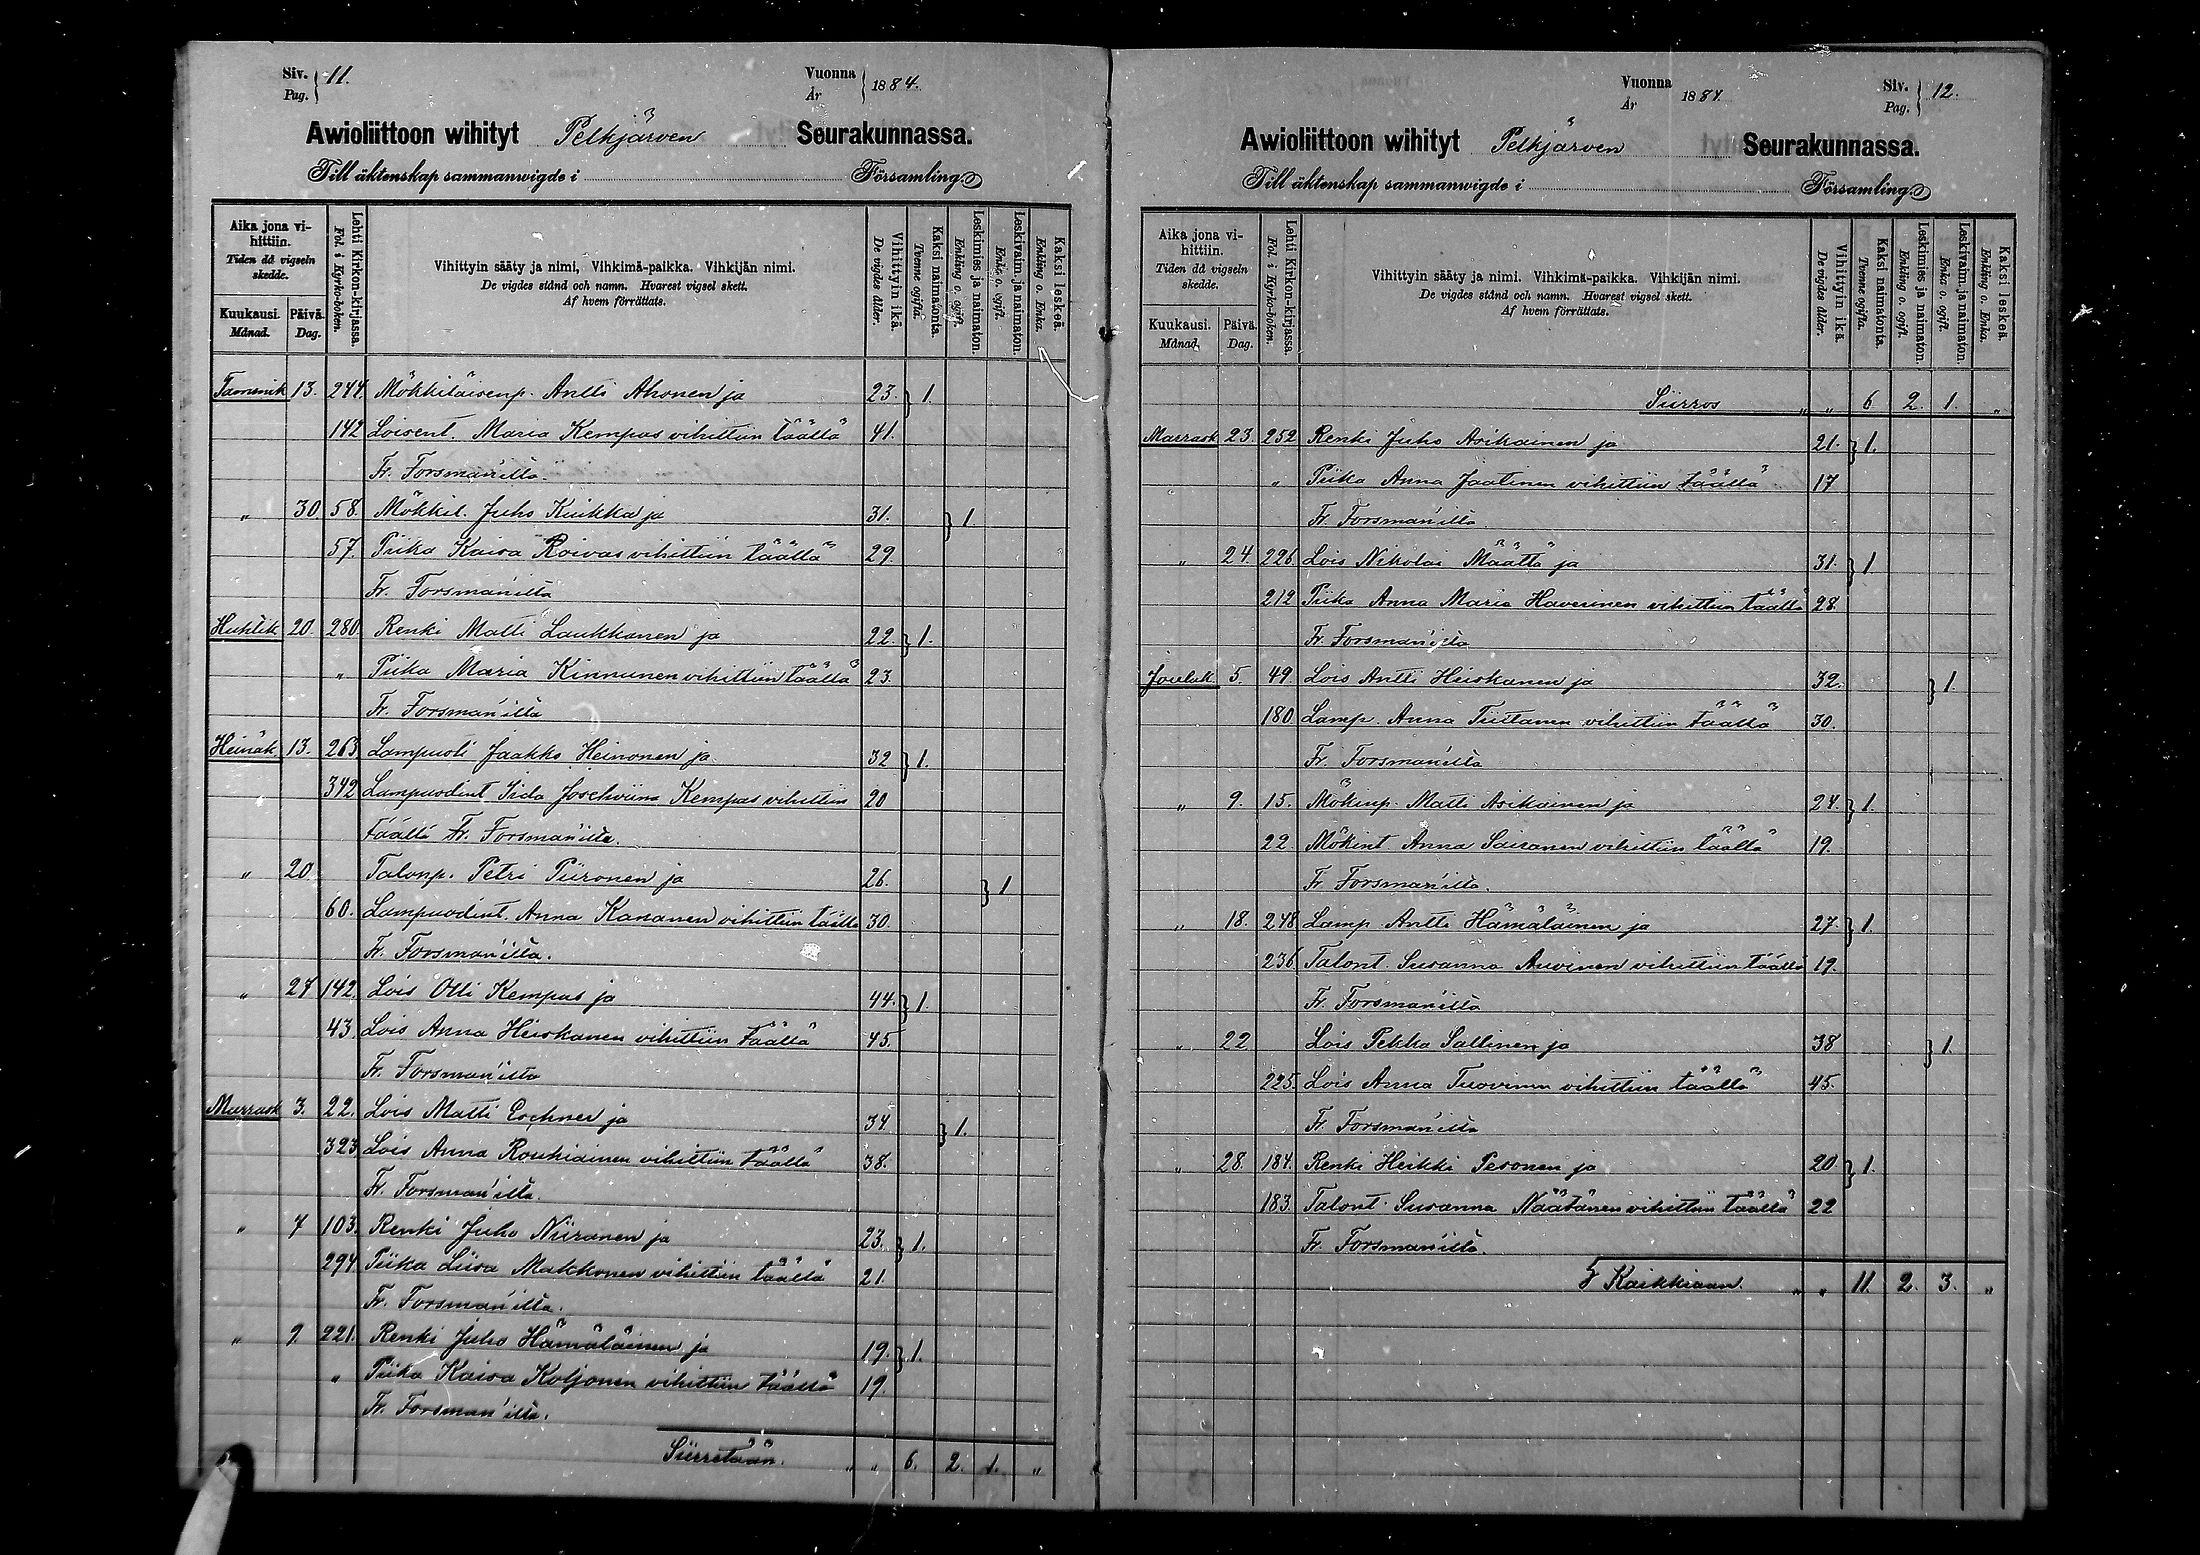 Siv. Pag. 11.
Vuonna År 1884.
Awioliittoon wihityt Pelkjärven Seurakunnassa.
Till äktenskap sammanwigde i Församling
Aika jona vihittiin. Tiden då vigseln skedde.
Kuukausi. Månad.
Päivä. Dag.
Lehti Kirkon-kirjassa. Fol. i Kyrko-boken.
Vihittyin sääty ja nimi, Vihkimä-paikka. Vihkijän nimi.
De vigdes stånd och namn. Hvarest vigsel skett.
Af hvem förrättats.
Vihittyin ikä. De vigdes ålder.
Kaksi naimatonta. Tvenne ogifta.
Leskimies ja naimaton. Enkling o. ogift.
Leskivaim. ja naimaton. Enka o. ogift.
Kaksi leskeä. Enkling o. Enka.
Tammik 13. 244. Mökkiläisenp. Antti Ahonen ja 23. } 1.
142 Loisent. Maria Kempas vihittiin täällä 41.
Fr. Forsman'ilta.
„ 30. 58. Mökkil. Juho Kuikka ja 31. } 1.
57. Piika Kaisa Roivas vihittiin täällä 29.
Fr. Forsman'ilta
Huhtik 20. 280. Renki Matti Laukkanen ja 22. } 1.
„ Piika Maria Kinnunen vihittiin täällä 23.
Fr. Forsman'ilta
Heinäk 13. 263. Lampuoti Jaakko Heinonen ja 32 } 1.
342 Lampuodint Iida Josehviina Kempas vihittiin 20
täällä Fr. Forsman'ilta.
„ 20. Talonp. Petri Piironen ja 26. } 1
60. Lampuodint. Anna Kananen vihittiin täällä 30.
Fr. Forsman'ilta.
„ 27 142. Lois Olli Kempas ja 44. } 1.
43. Lois Anna Heiskanen vihittiin täällä 45.
Fr. Forsman'ilta
Marrask 3. 22. Lois Matti ja 34 } 1.
323 Lois Anna Rouhiainen vihittiin täällä 38.
Fr. Forsman'ilta.
„ 7 103. Renki Juho Niiranen ja 23. } 1.
294 Piika Liisa Makkonen vihittiin täällä 21.
Fr. Forsman'ilta.
„ 9. 221. Renki Juho Hämäläinen ja 19. } 1.
„ Piika Kaisa Koljonen vihittiin täällä 19.
Fr. Forsman'ilta.
Siirretään. „ „ 6. 2. 1. „
Vuonna År 1884.
Siv. Pag. 12.
Awioliittoon wihityt Pelkjärven Seurakunnassa.
Till äktenskap sammanwigde i Församling
Aika jona vihittiin. Tiden då vigseln skedde.
Kuukausi. Månad.
Päivä. Dag.
Lehti Kirkon-kirjassa. Fol. i Kyrko-boken.
Vihittyin sääty ja nimi. Vihkimä-paikka. Vihkijän nimi.
De vigdes stånd och namn. Hvarest vigsel skett.
Af hvem förrättats.
Vihittyin ikä. De vigdes ålder.
Kaksi naimatonta. Tvenne ogifta.
Leskimies ja naimaton. Enkling o. ogift.
Leskivaim. ja naimaton. Enka o. ogift.
Kaksi leskeä. Enkling o. Enka.
Siirros „ „ 6 2. 1. „
Marrask 23. 252 Renki Juho Asikainen ja 21. } 1.
„ Piika Anna Jaatinen vihittiin täällä 17
Fr. Forsman'ilta
„ 24. 226 Lois Nikolai Määttä ja 31. } 1
212 Piika Anna Maria Haverinen vihittiin täällä 28
Fr. Forsman'ilta
Jouluk 5. 49. Lois Antti Heiskanen ja 32. } 1.
180 Lamp. Anna Tiittanen vihittiin täällä 30.
Fr. Forsman'ilta
„ 9. 15. Mökinp. Matti Asikainen ja 24. } 1.
22. Mökint Anna Sairanen vihittiin täällä 19.
Fr Forsman'ilta.
„ 18. 248 Lamp Antti Hämäläinen ja 27. } 1.
236 Talont. Susanna Auvinen vihittiin täällä 19.
Fr. Forsman'ilta
„ 22. Lois Pekka Sallinen ja 38 } 1.
225. Lois Anna Tuovinen vihittiin täällä 45.
Fr. Forsman'ilta
„ 28. 184. Renki Heikki Pesonen ja 20. } 1.
183. Talont. Susanna Näätänen vihittiin täällä 22
Fr. Forsman'ilta.
Kaikkiaan. „ „ 11. 2. 3. „